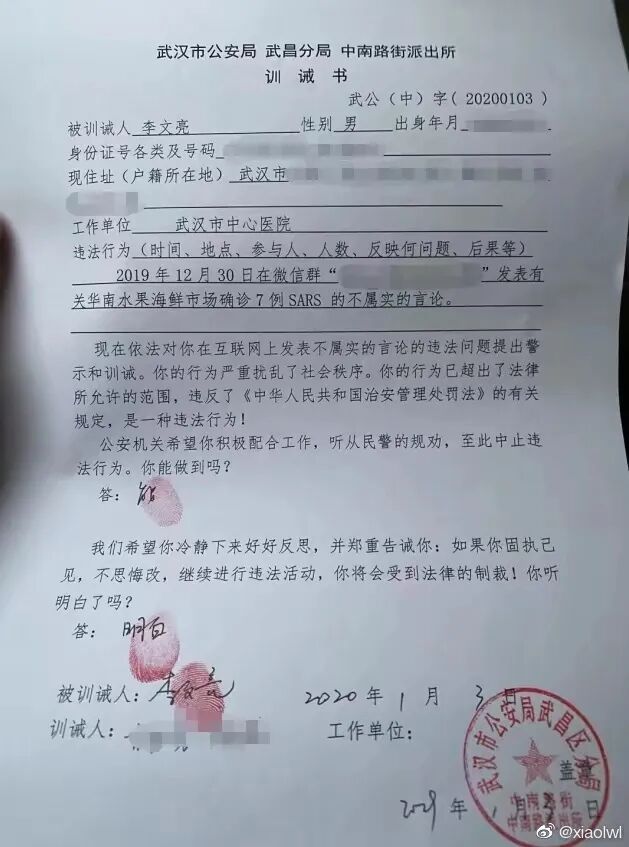 武汉市公安局 武昌分局 中南路街派出所
训 诫 书
武公（中）字（20200103）
被训诫人 李文亮 性别 男 出身年月
身份证号各类及号码
现住址（户籍所在地） 武汉市
工作单位 武汉市中心医院
违法行为（时间、地点、参与人、人数、反映何问题、后果等）
2019年12月30日在微信群“ ”发表有
关华南水果海鲜市场确诊7例SARS的不属实的言论。
现在依法对你在互联网上发表不属实的言论的违法问题提出警
示和训诫。你的行为严重扰乱了社会秩序。你的行为已超出了法律
所允许的范围，违反了《中华人民共和国治安管理处罚法》的有关
规定，是一种违法行为！
公安机关希望你积极配合工作，听从民警的规劝，至此中止违
法行为。你能做到吗？
答： 能
我们希望你冷静下来好好反思，并郑重告诫你：如果你固执己
见，不思悔改，继续进行违法活动，你将会受到法律的制裁！你听
明白了吗？
答： 明白
被训诫人：李文亮 2020年1月3日
训诫人： 工作单位：
武汉市公安局武昌区分局
盖章
中南路街
中南路派出所
年1月3日
@xiaolwl